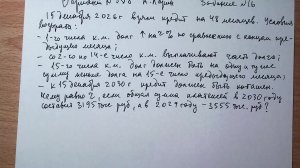 15 декабря 2026 г взяли кредит на 48 месяцев. Условия
возврата:
- 1-го числа к.м. долг ↑ на r% по сравнению с концом пре-
дыдущего месяца;
- со 2-го по 14-е число к.м. выплачивают часть долга;
- 15-го числа к.м. долг должен быть на одну и ту же
сумму меньше долга на 15-е число предыдущего месяца;
- к 15 декабря 2030 г. кредит должен быть погашен.
Чему равно r, если общая сумма платежей в 2030 году
составит 3195 тыс руб, а в 2029 году - 3555 тыс. руб?